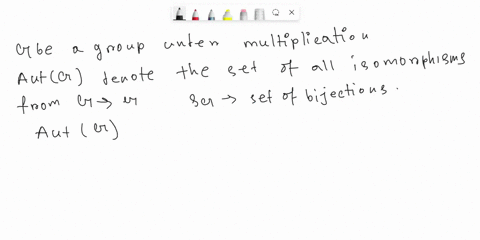 G be a group under multiplication
Aut(G) denote the set of all isomorphisms
from G → G SG → set of bijections.
Aut(G)